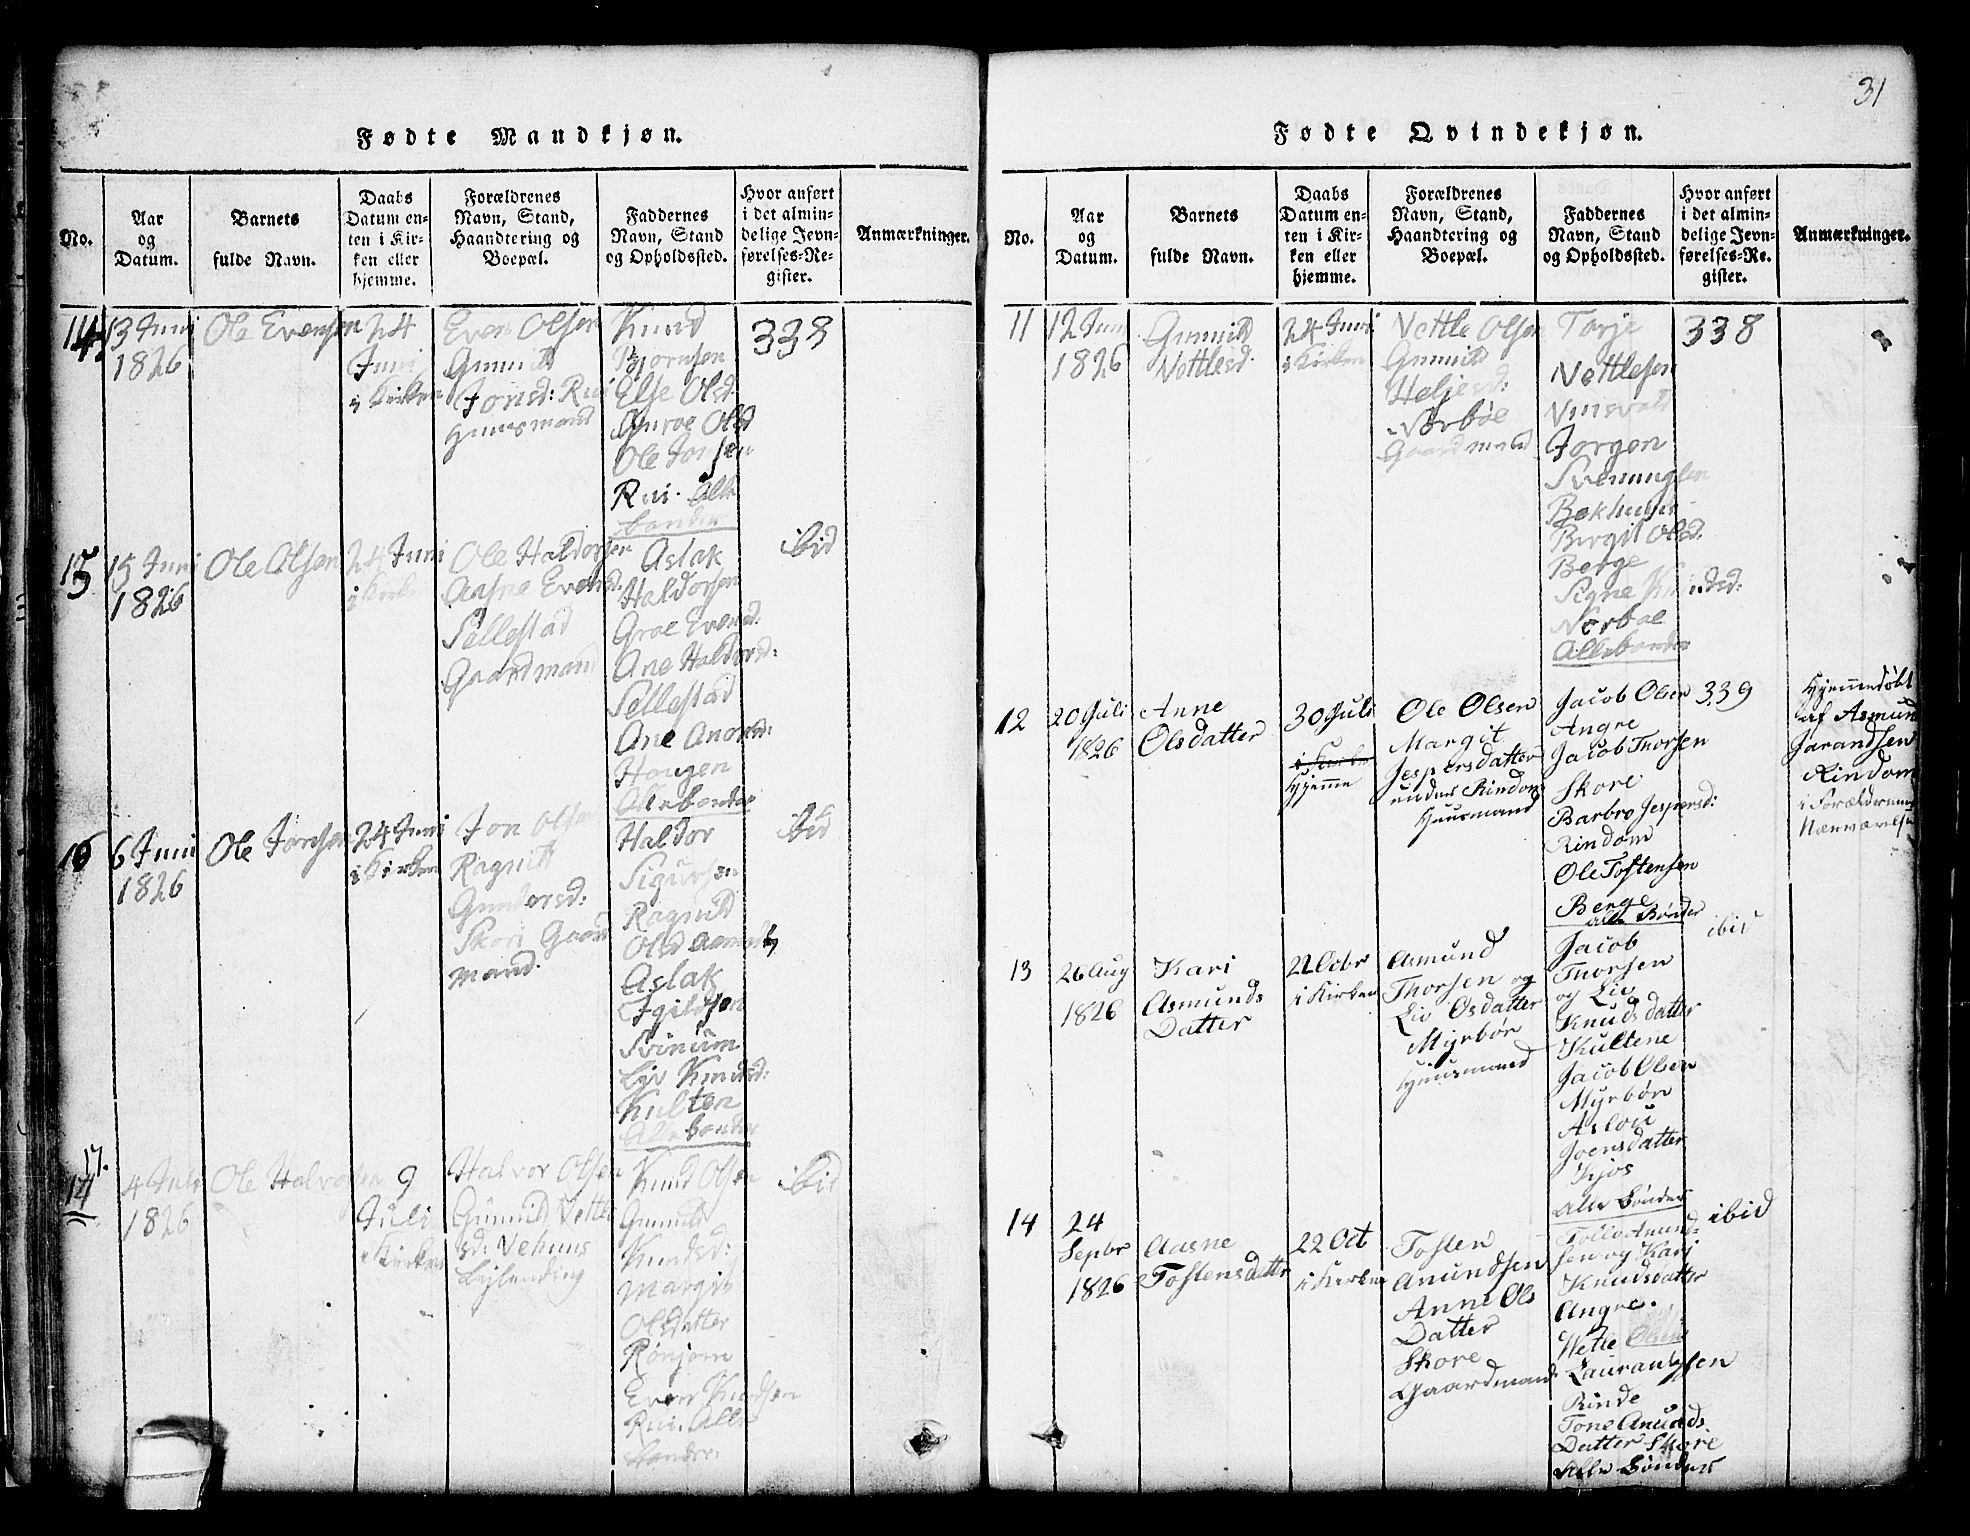 31
Fødte Mandkjøn.
No.
Aar
og
Datum.
Barnets
fulde Navn.
Daabs
Datum en-
ten i Kir-
ken eller
hjemme.
Forældrenes
Navn, Stand,
Haandtering og
Boepæl.
Faddernes
Navn, Stand
og Opholdssted.
Hvor anført
i det almin-
delige Jevn-
førelses-Re-
gister.
Anmærkninger.
14
13 Juni
1826
Ole Evensen
24
Juni
i Kirken
Even Olsen
Gunnild
Jonsd: Rui
Huusmand
Knud
Bjornsen
Else Olsd.
Guroe Olsd
Ole Jonsen
Rui. Alle
bender
338
15
15 Juni
1826
Ole Olsen
24 Juni
i Kirken
Ole Haldorsen
Aasne Evensd.
Sellestad
Gaardmand
Aslak
Haldorsen
Groe Evensd:
Ane Haldorsd:
Sellestad
Ane Anorsd:
Haugen
Alle bender
ibid
16
6 Juni
1826
Ole Jonsen
24 Juni
i Kirken
Jon Olsen
Ragnild
Gundersd:
Skori Gaard
mand.
Haldor
Sigursen
Ragnild
Olsd
Aslak
Igildsen
Svinum
Liv Knudsd:
Kulten
Alle bender
ibid
17.
14
4 Juli
1826
Ole Halvorsen
9
Juli
i Kirken
Halvor Olsen
Gunnild Vettle
sd: Vehuus
Lejlending
Knud Olsen
Gunnild
Knudsd:
Margit
Olsdatter
Rønjom
Even Knudsen
Rui. Alle
bender.
ibid
Fødte Qvindekjøn.
No.
Aar
og
Datum.
Barnets
fulde Navn.
Daabs
Datum en-
ten i Kir-
ken eller
hjemme.
Forældrenes
Navn, Stand,
Haandtering og
Boepæl.
Faddernes
Navn, Stand
og Opholdssted.
Hvor anført
i det almin-
delige Jevn-
førelses-Re-
gister.
Anmærkninger.
11
12 Juni
1826
Gunnild
Vettlesd
24 Juni
i Kirken
Vettle Olsen
Gunnild
Heljesd:
Norbøe
Gaardmand
Torje
Vettlesen
Vinsvald
Jorgen
Svenungsen
Bekhuus
Birgit Olsd:
Berge
Signe Knudsd:
Norboe
Alle bender
338
12
20 Juli
1826
Anne
Olsdatter
30 Juli
i Kirken
Hjemme
Ole Olsen
Margit
Jespersdatter
under Rindom
Huusmand
Jacob Olsen
Angre
Jacob Thorsen
Skore
Barbro Jespersd:
Rindom
Ole Tostensen
Berge
alle Bønder
339
Hjemmedøbt
af Asmund
Jarandsen
Rindom
i Forældrenes
Nærværelse
13
26 Aug
1826
Kari
Asmunds
Datter
22 Octbr
i Kirken
Asmund
Thorsen og
Liv Osdatter
Myrbør
Huusmand
Jacob
Thorsen
og Liv
Knudsdatter
Kultene
Jacob Olsen
Myrbør
Aslou
Joensdatter
Kjos
Alle Bønder
ibid
14
24
Septbr
1826
Aasne
Tostensdattr
22 Oct
i Kirken
Tosten
Anundsen
Anne Ols
Datter
Skore
Gaardmand
Tollo Anund-
sen og Kari
Knudsdatter
Angre.
Wetle Olsen
Laurantsen
Rinde
Tone Anunds
Datter Skore
Alle Bønder
ibid